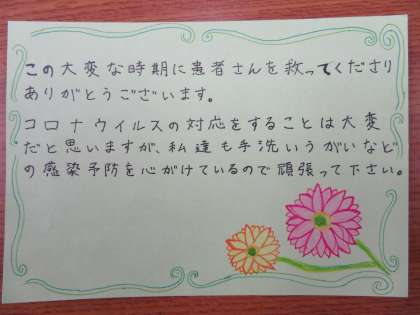 この大変な時期に患者さんを救ってくださり
ありがとうございます。
コロナウイルスの対応をすることは大変
だと思いますが、私達も手洗いうがいなど
の感染予防を心がけているので頑張って下さい。